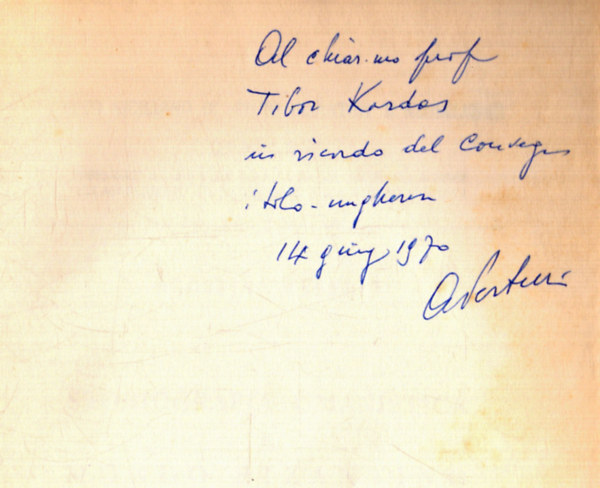 Al chiar.mo prof
Tibor Kardos
in ricordo del Convegno
italo-ungherese
14 giug 1970